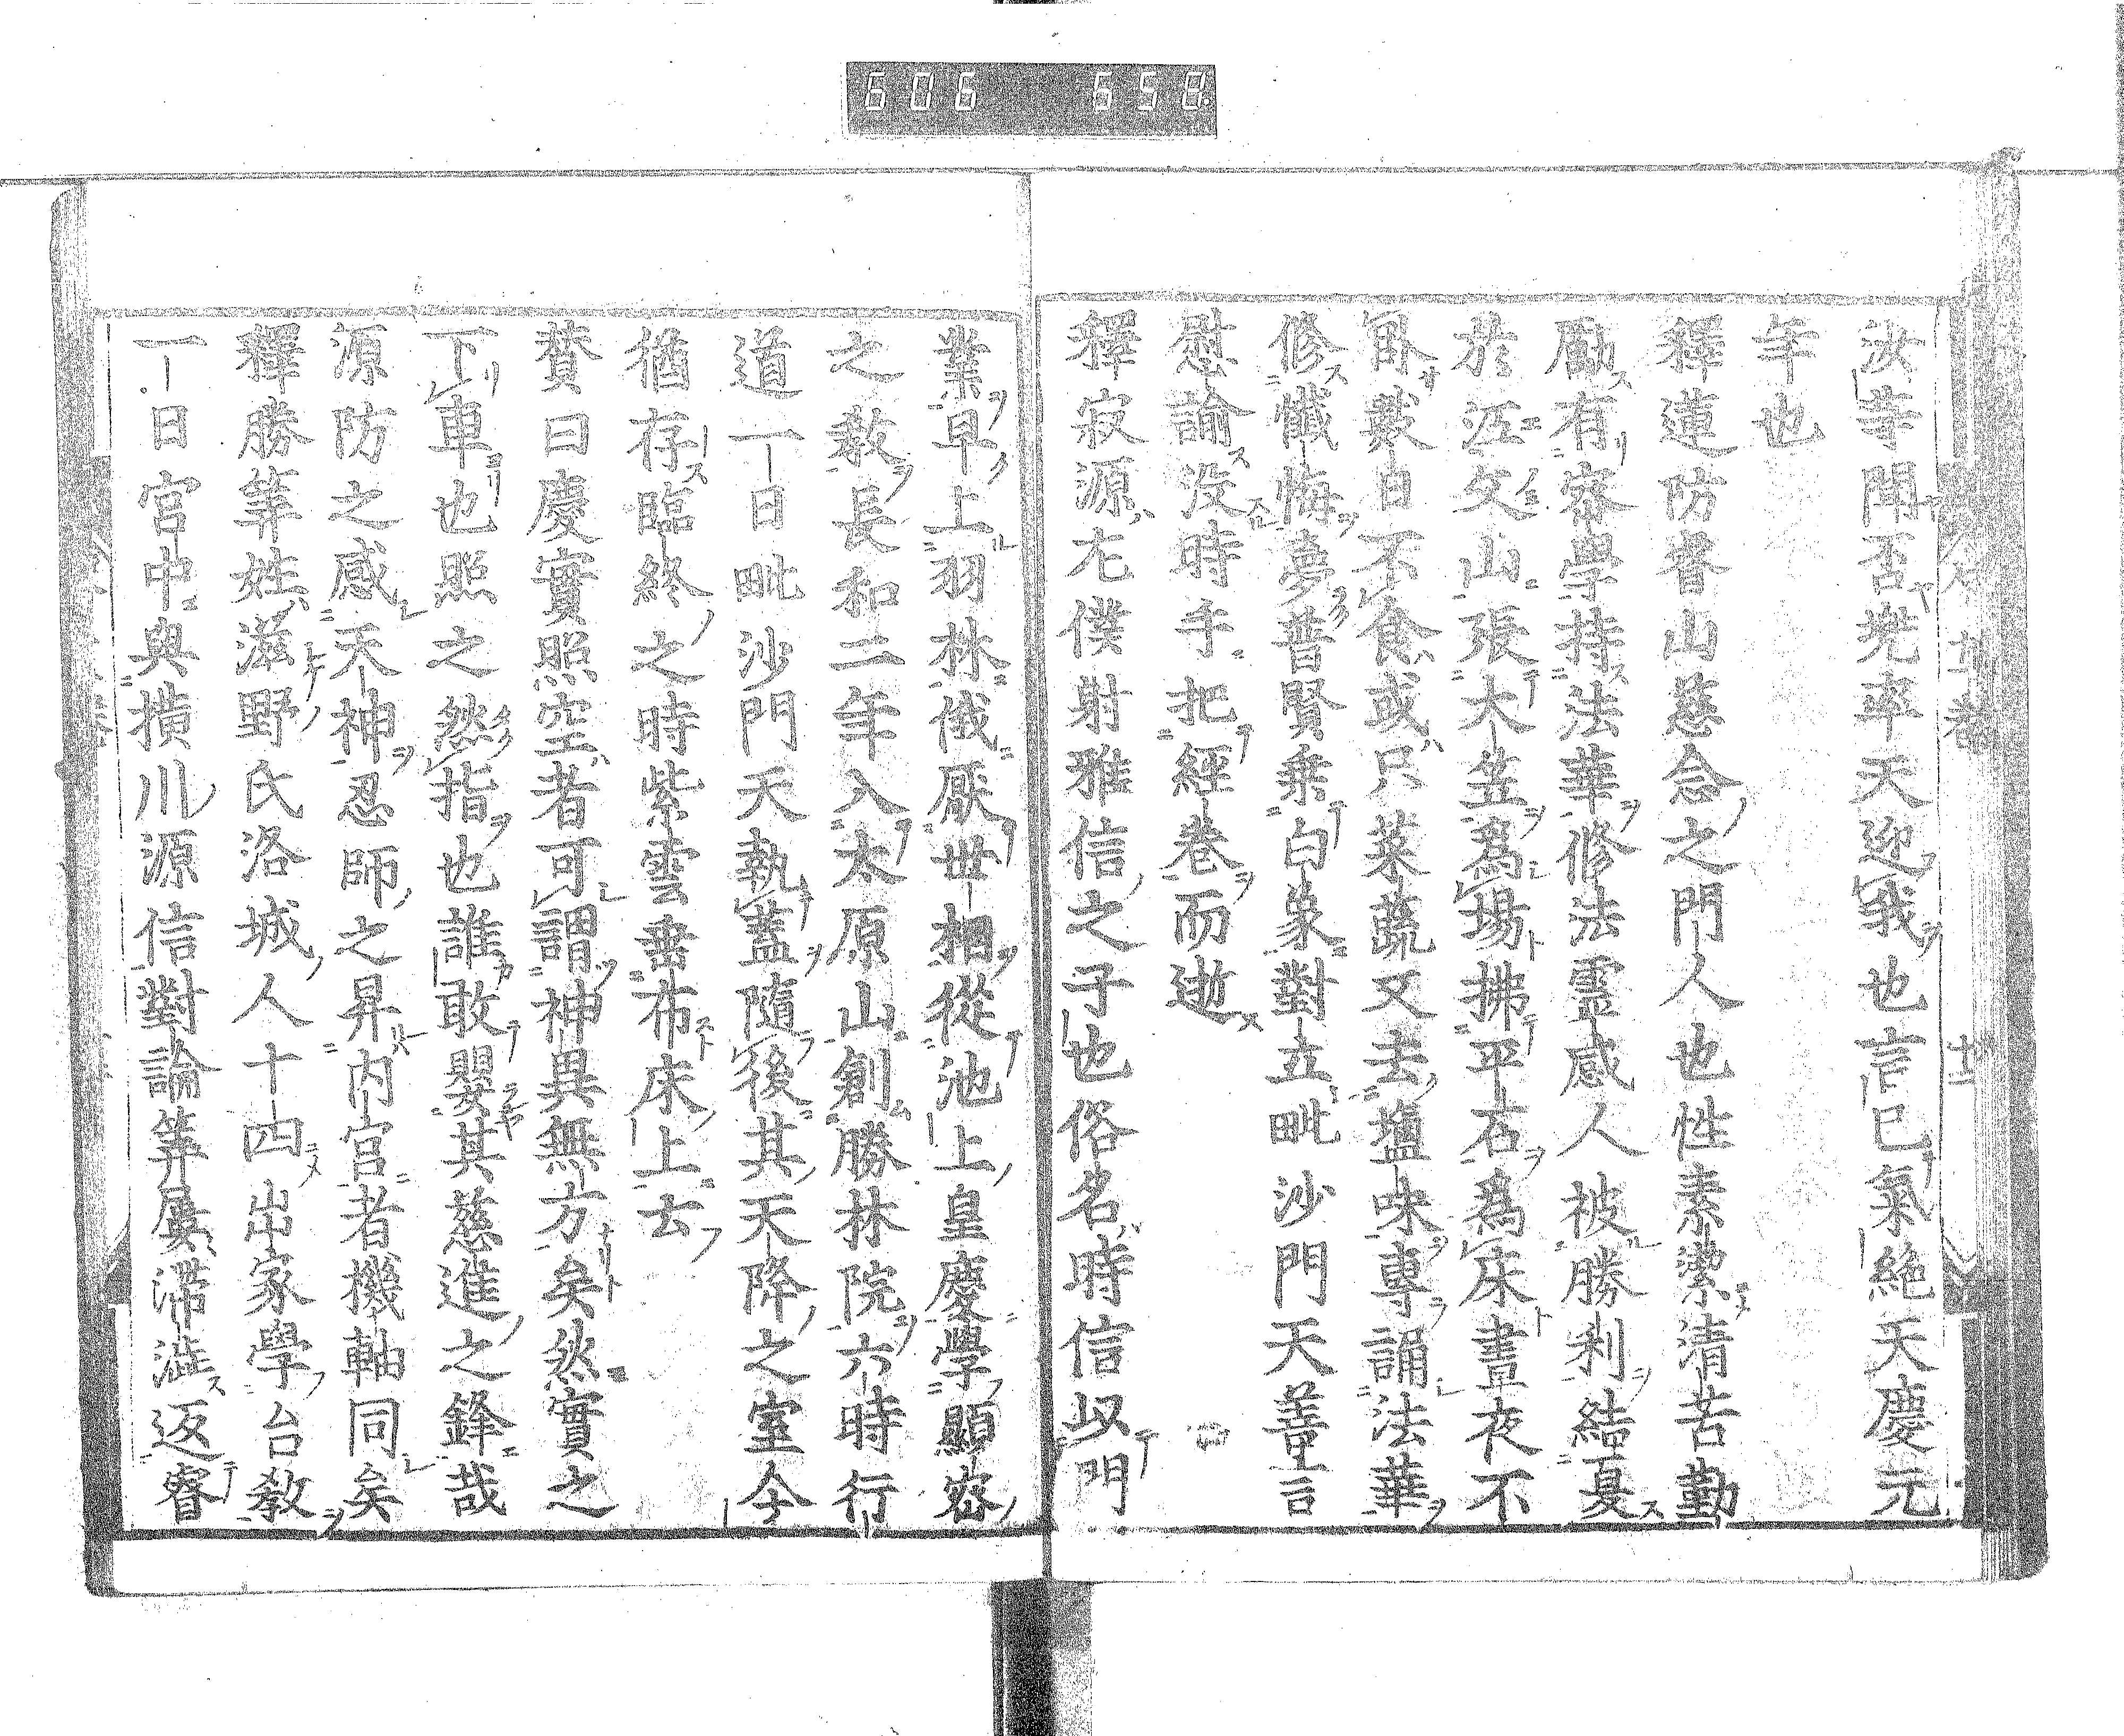 606 658
汝等聞否兠率天迎我也言已氣絶天慶元
年也
釋蓮防睿山慈念之門人也性素潔清苦勤
勵有密學持法華修法靈感人被勝利結夏
於江文山張大笠爲場拂平石爲床晝夜不
臥數日不食或只菜蔬又去塩味專誦法華
修懺悔夢普賢乗白象對立毗沙門天善言
慰諭没時手把經巻而逝
釋寂源左僕射雅信之子也俗名時信以門
業早上羽林俄厭世相從池上皇慶學顯密
之教長和二年入太原山創勝林院六時行
道一日毗沙門天執蓋隨後其天降之室今
猶存臨終之時紫雲垂布床上去
賛曰慶實照空者可謂神異無方矣然實之
下車也照之然指也誰敢嬰其慈進之鋒哉
源防之感天神忍師之昇内宮者機軸同矣
釋勝筭姓滋野氏洛城人十四出家學台教
一日宮中與横川源信對論筭屡滯澁返睿